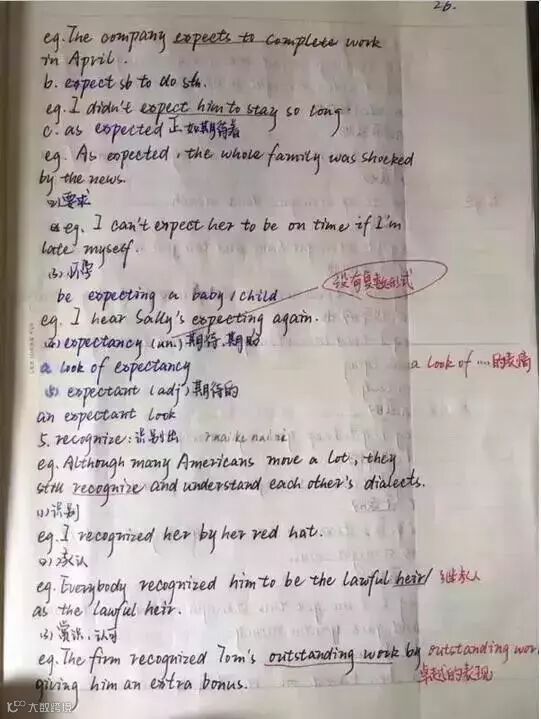 26.
eg. The company expects to complete work
in April.
b. expect sb to do sth.
eg. I didn't expect him to stay so long.
c. as expected 正如期待者
eg. As expected, the whole family was shocked
by the news.
(2) 要求
eg. I can't expect her to be on time if I'm
late myself.
(3) 怀孕
没有复数形式
be expecting a baby / child
eg. I hear Sally's expecting again.
(4) expectancy (un.) 期待、期盼
a look of expectancy
a look of .... 的表情
(5) expectant (adj) 期待的
an expectant look
5. recognize: 识别出
eg. Although many Americans move a lot, they
still recognize and understand each other's dialects.
(1) 识别
eg. I recognized her by her red hat.
(2) 承认
eg. Everybody recognized him to be the lawful heir / 继承人
as the lawful heir.
(3) 赏识、认可
eg. The firm recognized Tom's outstanding work by outstanding wor
giving him an extra bonus. 卓越的表现
大数跨境